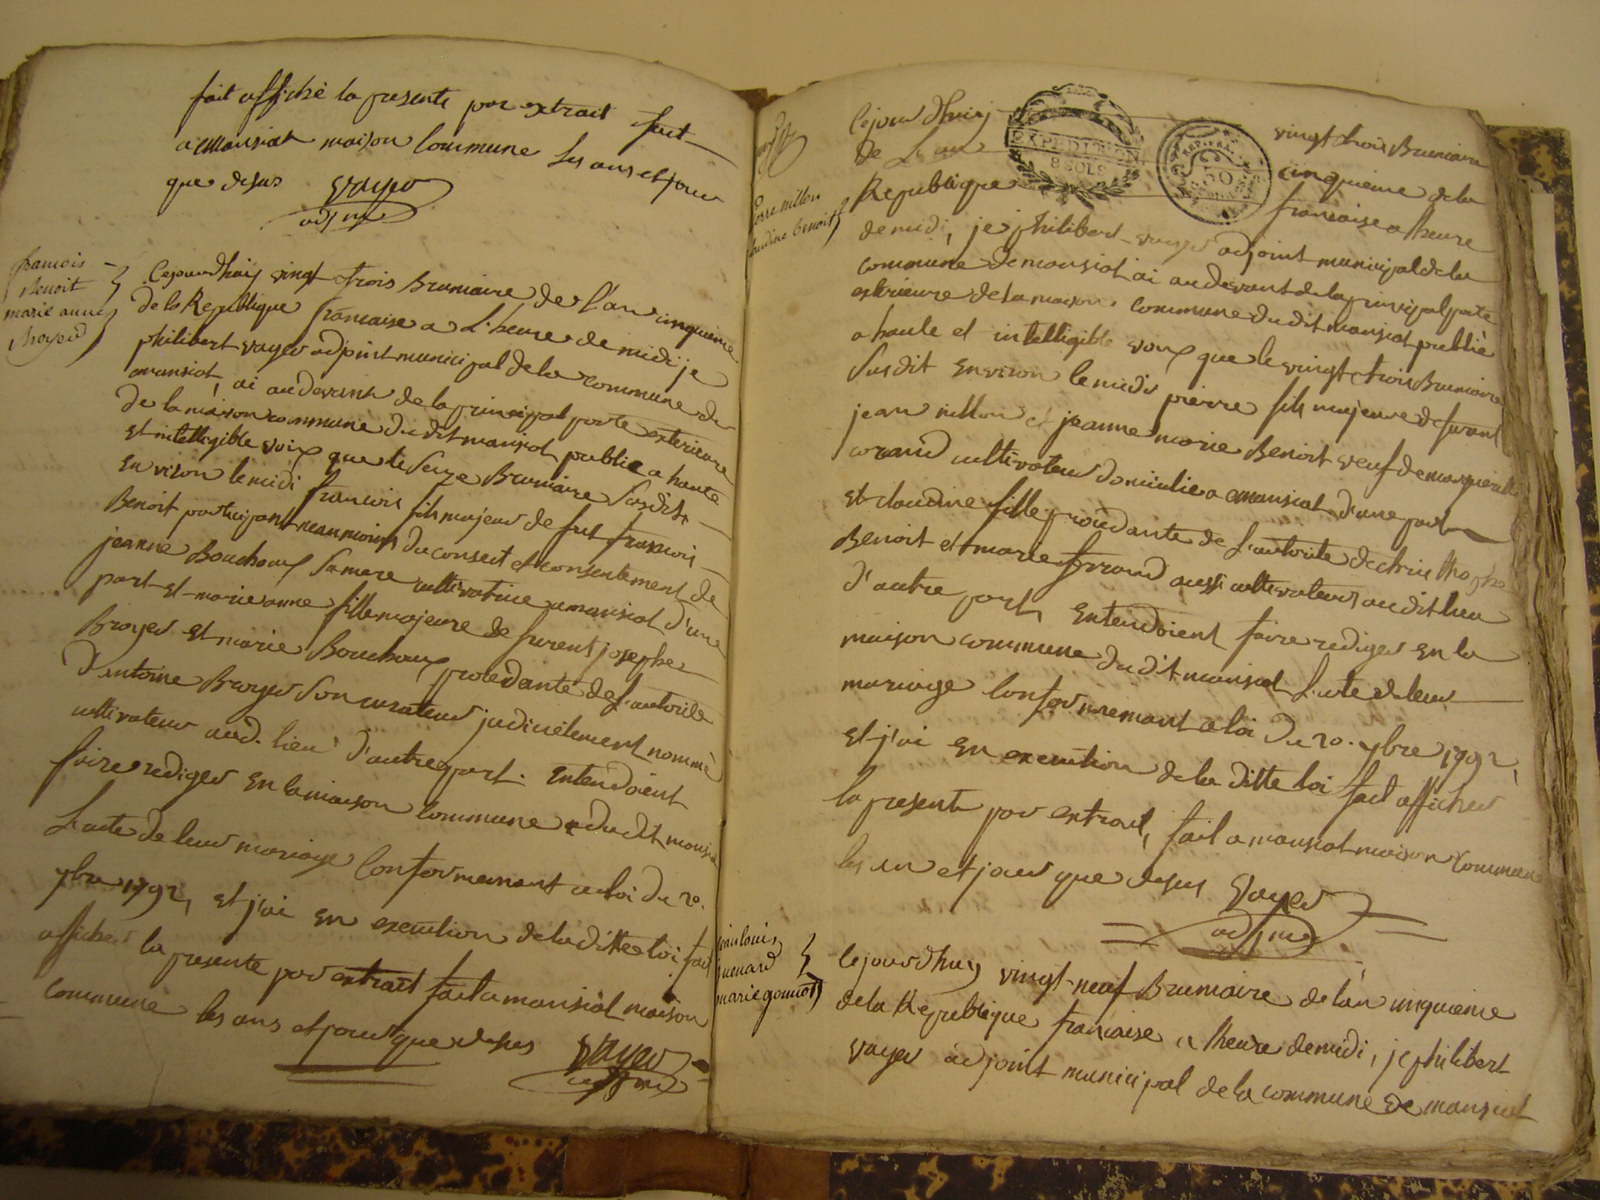 fait affiché la presente par extrait fait
a mansiat maison Commune les ans et jour
que desus vayer
adjoint
francois
Benoit
marie anne
Broyer
Cejourdhuy vingt trois Brumaire de l'an cinquieme
de la Republique francaise a L'heure de midi je
philibert vayer adjoint municipal de la commune de
mansiat, ai audevant de la principal porte exterieure
De la maison commune dudit mansiat publié a haute
et intelligible voix que le seize Brumaire susdit
Environ le midi francois fils majeur de fut francois
Benoit participant neanmoins du conseil et consentement de
jeanne Bouchoux sa mere cultivatrice a mansiat d'une
part et marie anne fille majeure de furent josephe
Broyer et marie Bouchoux procedante de L'autorite
d'antoine Broyer son curateur judiciélement nommé
cultivateur aud. lieu d'autre part. Entendoient
faire rediger en la maison Commune dudit mansiat
L'acte de leur mariage Conformemant a la loi du 20.
7bre 1792, et j'ai en execution de la ditte loi fait
afficher la presente par extrait fait a mansiat maison
commune les ans et jour que desus vayer
adjoint
pierre millon
claudine benoit
Cejourdhuy vingt trois Brumaire
De L'an cinquieme de la
Republique francaise a lheure
EXPEDITION
8 SOLS
50
de midi, je philibert vayer adjoint municipal de la
commune de mansiat ai audevant de la principal porte
exterieure de la maison commune dudit mansiat publié
a haute et intelligible voix que le vingt trois Brumaire
susdit environ le midi pierre fils majeur de furent
jean millon et jeanne marie Benoit veuf de marguerite
cultivateur domicilié a mansiat d'une part
et claudine fille procedante de L'autorite de christhophe
Benoit et marie ferrand aussi cultivateurs audit lieu
d'autre part, Entendoient faire rediger en la
maison commune dudit mansiat L'acte de leur
mariage Conformemant a loi du 20. 7bre 1792,
et j'ai en execution de la ditte loi fait afficher
la presente par extrait, fait a mansiat maison commune
les an et jour que desus vayer
adjoint
jean louis
marie gonnot
Cejourdhuy vingt neuf Brumaire de l'an cinquieme
de la Republique francaise a lheure de midi, je philibert
vayer adjoint municipal de la commune de mansiat